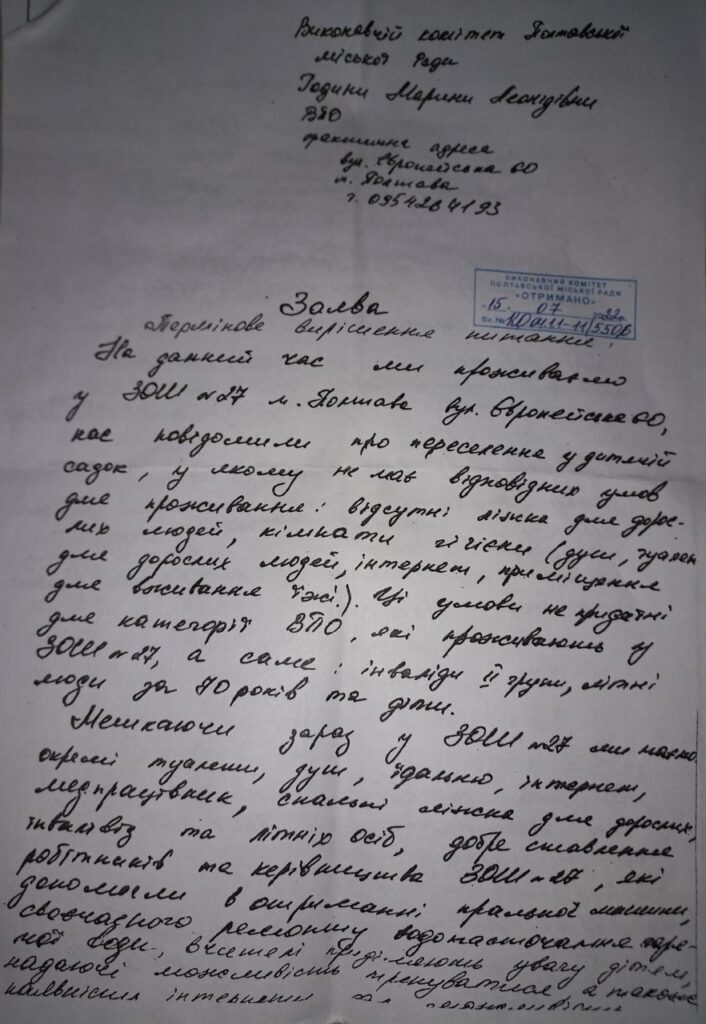 Виконавчій комітет Полтавської
міської Ради
Години Марини Леонідівни
ВПО
фактична адреса
вул. Європейська 60
м. Полтава
т. 0954264193
ВИКОНАВЧИЙ КОМІТЕТ
ПОЛТАВСЬКОЇ МІСЬКОЇ РАДИ
«ОТРИМАНО»
15. 07 2022р.
Вх.№
Заява
«Термінове вирішення питання»
На данний час ми проживаємо
у ЗОШ №27 м. Полтава вул. Європейська 60,
нас повідомили про переселення у дитячій
садок, у якому не має відповідних умов
для проживання: відсутні ліжка для дорос-
лих людей, кімнати гігієни (душ, туалет
для дорослих людей, інтернет, приміщення
для вживання їжі.). Ці умови не придатні
для категорії ВПО, які проживають у
ЗОШ №27, а саме: інваліди II групи, літні
люди за 70 років та діти.
Мешкаючи зараз у ЗОШ №27 ми маємо
окремі туалети, душ, їдальню, інтернет,
медпрацівник, спальні ліжка для дорослих,
інвалівіз та літніх осіб, добре ставлення
робітників та керівництва ЗОШ №27, які
допомогли в отриманні пральної машини,
своєчасного ремонту водопасточання гаря-
чої води, вчителі приділяють увагу дітям,
надаючі можливість тренуватися а також
наявність інтернету для